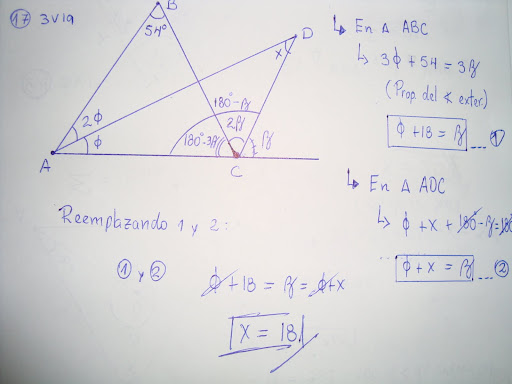 17 3V19
B
54°
D
x
180°-β
2β
2ϕ
ϕ
180°-3β
β
A
C
↳ En △ ABC
↳ 3ϕ + 54 = 3β
(Prop. del ∢ exter.)
ϕ + 18 = β ... 1
↳ En △ ADC
↳ ϕ + x + 180° - β = 180°
ϕ + x = β ... 2
Reemplazando 1 y 2:
1 y 2 ϕ + 18 = β = ϕ + x
x = 18